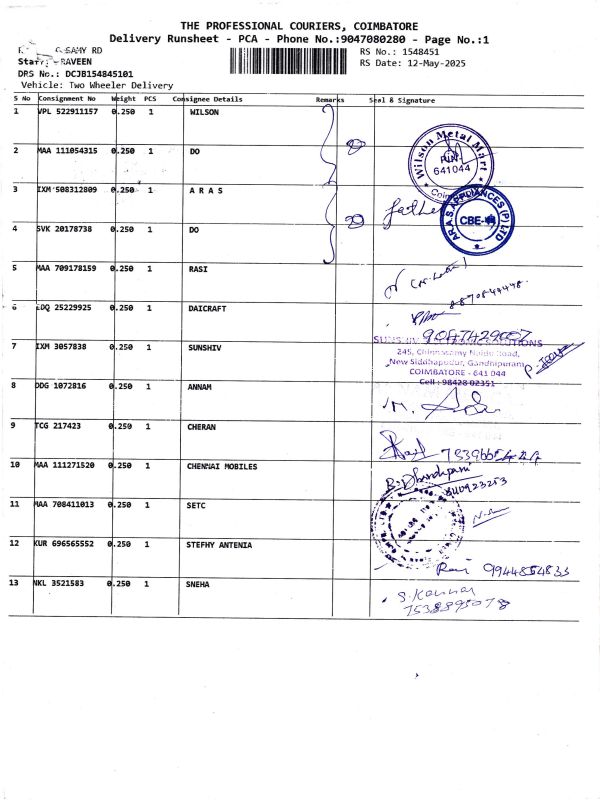 THE PROFESSIONAL COURIERS, COIMBATORE
Delivery Runsheet - PCA - Phone No.:9047080280 - Page No.:1
SAMY RD
RS No.: 1548451
RS Date: 12-May-2025
DRS No.: DCJB154845101
Vehicle: Two Wheeler Delivery
S No Consignment No Weight PCS Consignee Details Remarks Seal & Signature
1 VPL 522911157 0.250 1 WILSON
2 MAA 111054315 0.250 1 DO
Wilson Metal Mart
PIN
641044
3 IXM 508312809 0.250 1 A R A S
4 SVK 20178738 0.250 1 DO
A.R.A.S APPLIANCES (P) LTD
CBE
5 MAA 709178159 0.250 1 RASI
6 EDQ 25229925 0.250 1 DAICRAFT
9047429007
7 IXM 3057838 0.250 1 SUNSHIV
SUNSHIV
245, Chinnasamy Naidu Road,
New Siddhapudur, Gandhipuram,
COIMBATORE - 641 044
Cell : 98428 02351
8 DDG 1072816 0.250 1 ANNAM
9 TCG 217423 0.250 1 CHERAN
10 MAA 111271520 0.250 1 CHENNAI MOBILES
B. Dhandapani
11 MAA 708411013 0.250 1 SETC
12 KUR 696565552 0.250 1 STEFHY ANTENIA
Ravi 9944854833
13 NKL 3521583 0.250 1 SNEHA
S. Kannan
7538895078